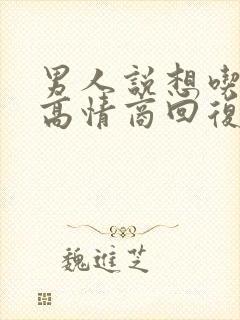 男人説想喫
高情商回復
魏進芝